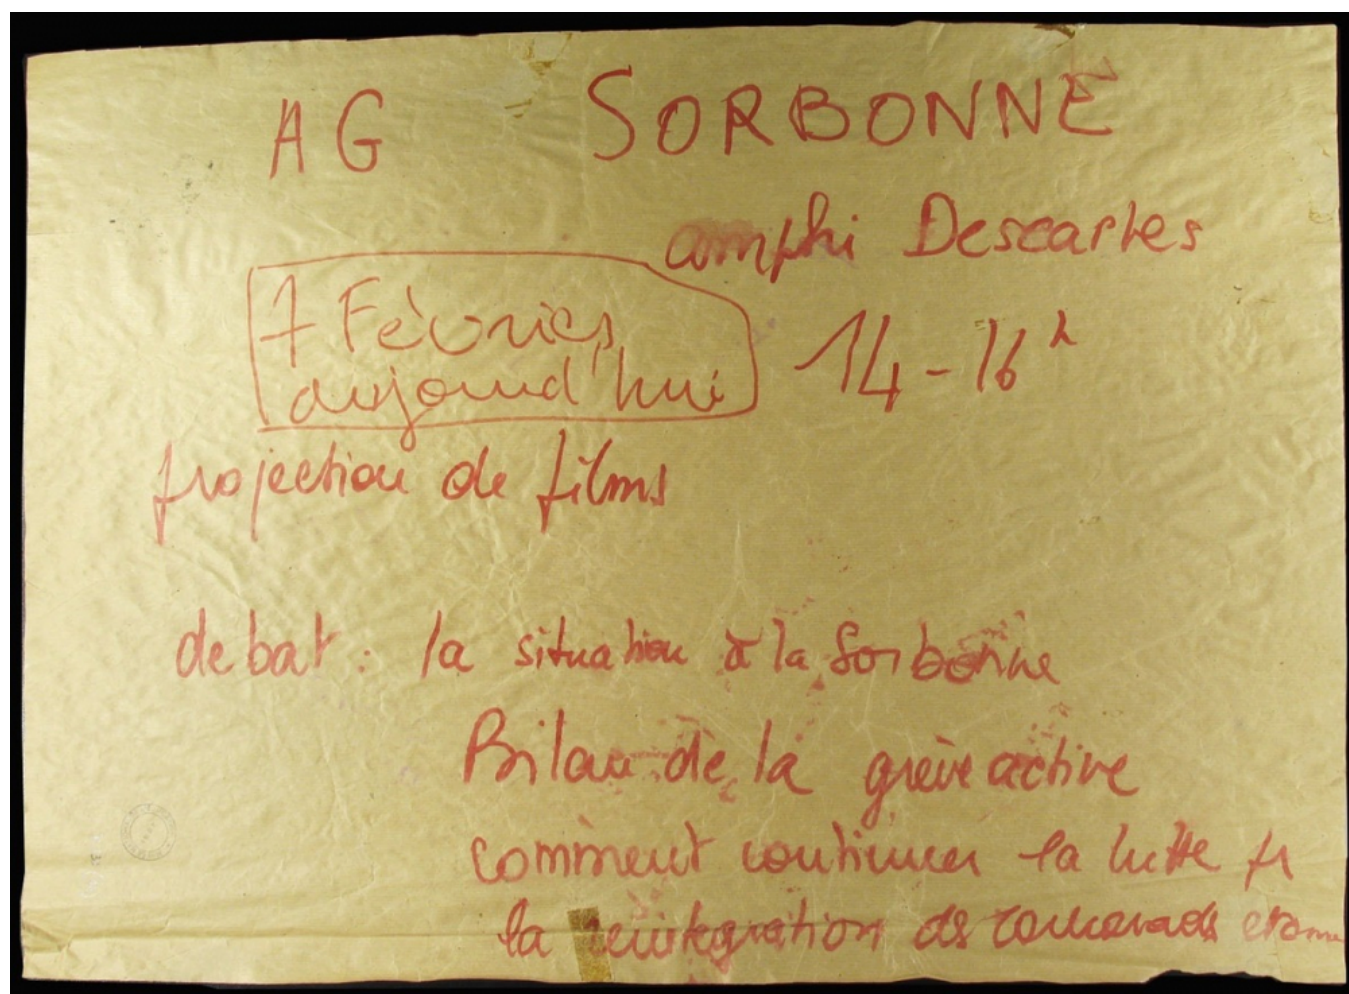 AG SORBONNE
amphi Descartes
7 Février
aujourd'hui
14-16h
projection de films
debat : la situation à la Sorbonne
Bilan de la grève active
comment continuer la lutte pr
la reintegration ds camarades